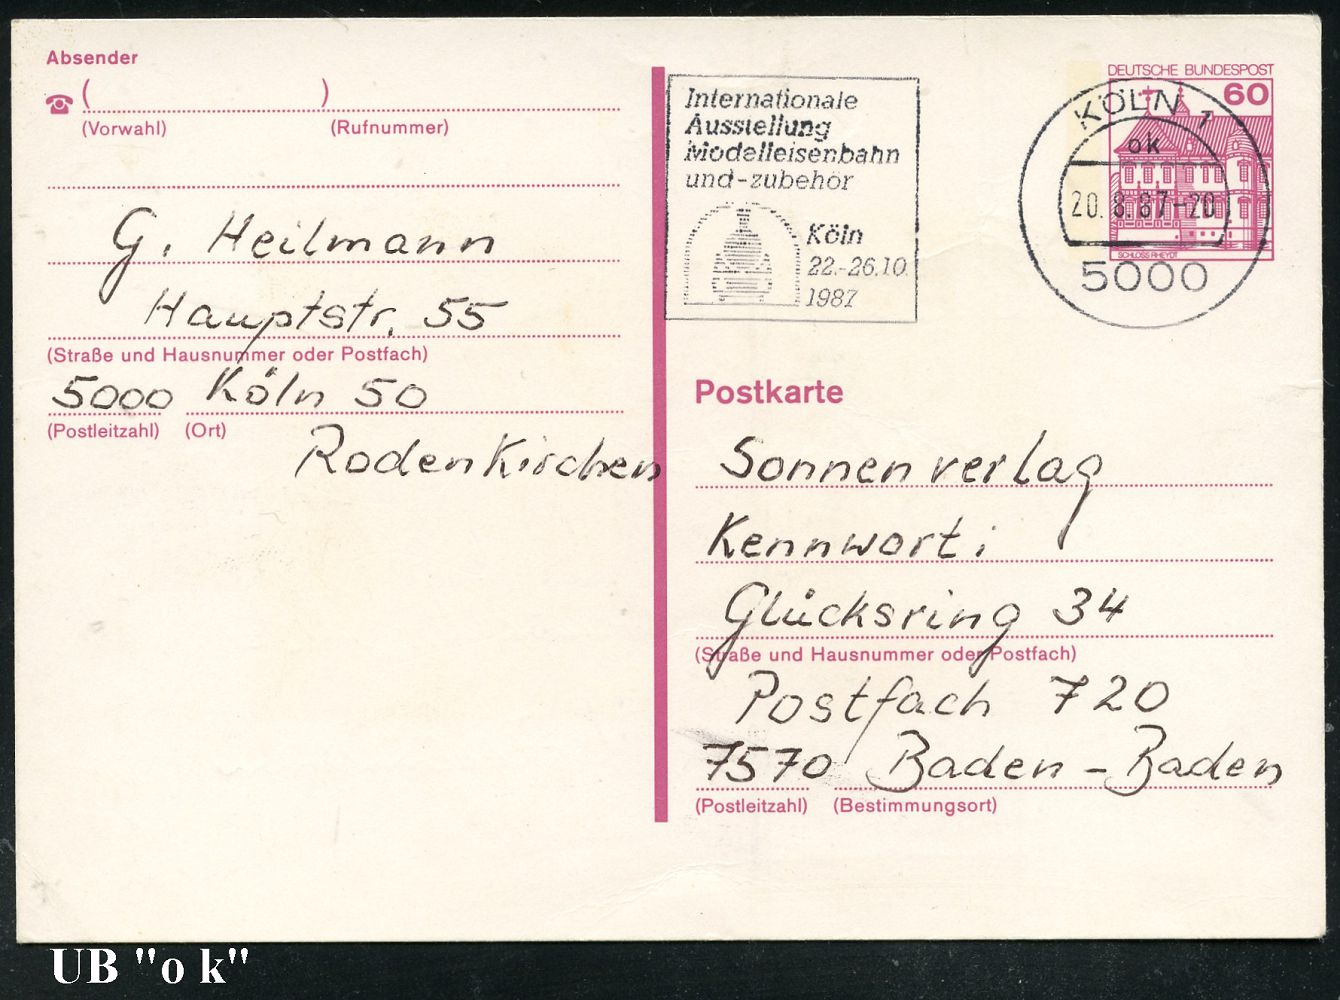 Absender
☎ ( )
(Vorwahl) (Rufnummer)
G. Heilmann
Hauptstr. 55
(Straße und Hausnummer oder Postfach)
5000 Köln 50
(Postleitzahl) (Ort)
Rodenkirchen
Internationale
Ausstellung
Modelleisenbahn
und -zubehör
Köln
22.-26.10.
1987
DEUTSCHE BUNDESPOST
60
SCHLOSS RHEYDT
KÖLN 1
ok
20.8.87-20
5000
Postkarte
Sonnenverlag
Kennwort:
Glücksring 34
(Straße und Hausnummer oder Postfach)
Postfach 720
7570 Baden-Baden
(Postleitzahl) (Bestimmungsort)
UB "o k"